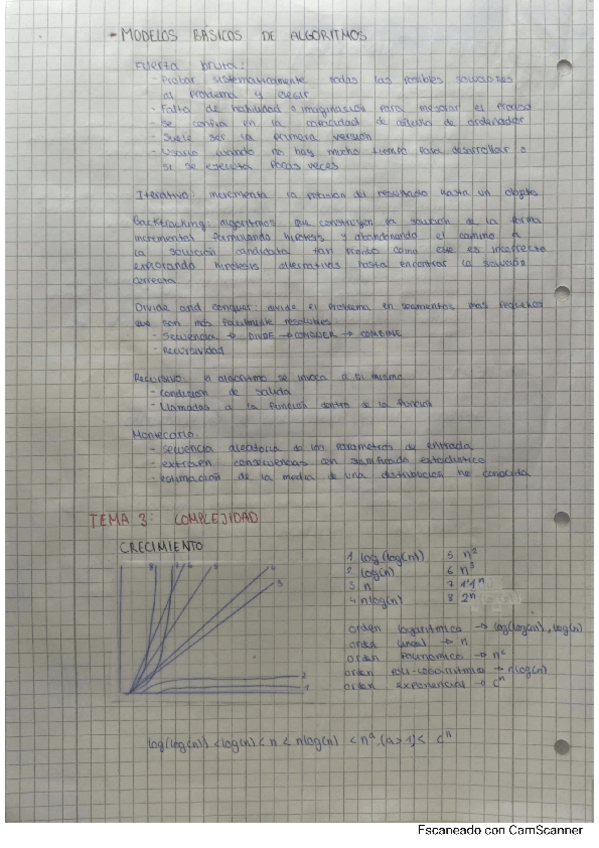 - MODELOS BÁSICOS DE ALGORITMOS
Fuerza bruta:
- Probar sistematicamente todas las posibles soluciones
al problema y elegir
- Falta de habilidad o imaginación para mejorar el proceso
- Se confía en la capacidad de cálculo de ordenador
- Suele ser la primera versión
- Usarlo cuando no hay mucho tiempo para desarrollar o
si se ejecuta pocas veces
Iterativo: incrementa la precisión del resultado hasta un objetivo
Backtracking: algoritmos que construyen la solución de la forma
incremental formulando hipótesis y abandonando el camino a
la solución candidata tan pronto como ese es incorrecto
explorando hipótesis alternativas hasta encontrar la solución
correcta
Divide and conquer: divide el problema en segmentos más pequeños
que son más facilmente resolubles
- Secuencia → DIVIDE → CONQUER → COMBINE
- Recursividad
Recursivo: un algoritmo se invoca a si mismo
- Condición de salida
- Llamadas a la función dentro de la función
Montecarlo:
- Secuencia aleatoria de los parametros de entrada
- extraen consecuencias con significado estadístico
- estimación de la media de una distribución no conocida
TEMA 3: COMPLEJIDAD
CRECIMIENTO
1 log(log(n)) 5 n²
2 log(n) 6 n³
3 n 7 1'1ⁿ
4 nlog(n) 8 2ⁿ
8 7 6 5 4
3
2
1
orden logaritmico → log(log(n)), log(n)
orden lineal → n
orden polinomico → nᶜ
orden poli-logaritmico → nlog(n)
orden exponencial → cⁿ
log(log(n)) < log(n) < n < nlog(n) < nᵃ (a>1) < cⁿ
Escaneado con CamScanner